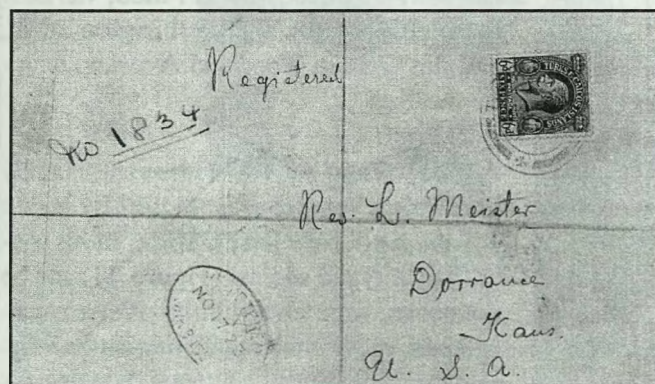 Registered
No 1834
Rev. L. Meister
Dorrance
Kans.
U. S. A.